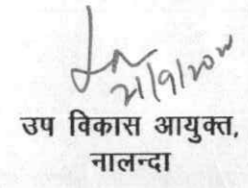 21/9/20
उप विकास आयुक्त,
नालन्दा